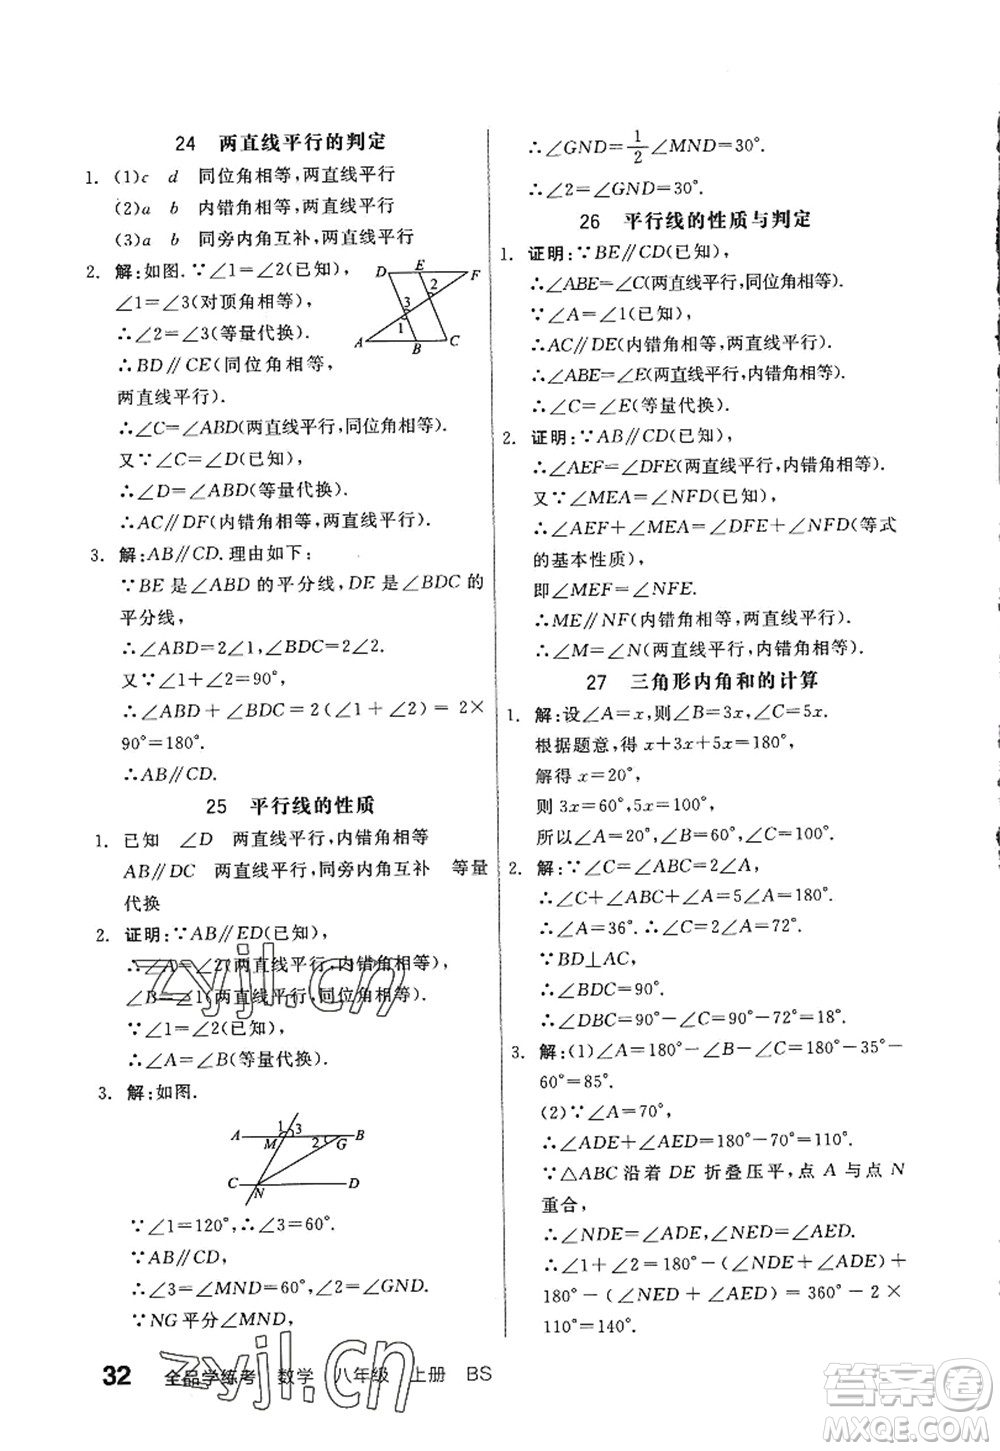 24 两直线平行的判定
1. (1)c d 同位角相等,两直线平行
(2)a b 内错角相等,两直线平行
(3)a b 同旁内角互补,两直线平行
2. 解:如图.∵∠1=∠2(已知),
∠1=∠3(对顶角相等),
∴∠2=∠3(等量代换).
∴BD∥CE(同位角相等,
两直线平行).
D E F
2
3
1
A B C
∴∠C=∠ABD(两直线平行,同位角相等).
又∵∠C=∠D(已知),
∴∠D=∠ABD(等量代换).
∴AC∥DF(内错角相等,两直线平行).
3. 解:AB∥CD.理由如下:
∵BE 是∠ABD 的平分线,DE 是∠BDC 的
平分线,
∴∠ABD=2∠1,∠BDC=2∠2.
又∵∠1+∠2=90°,
∴∠ABD+∠BDC=2(∠1+∠2)=2×
90°=180°.
∴AB∥CD.
25 平行线的性质
1. 已知 ∠D 两直线平行,内错角相等
AB∥DC 两直线平行,同旁内角互补 等量
代换
2. 证明:∵AB∥ED(已知),
∴∠A=∠2(两直线平行,内错角相等),
∠B=∠1(两直线平行,同位角相等).
∵∠1=∠2(已知),
∴∠A=∠B(等量代换).
3. 解:如图.
A M 1 3 2 G B
C N D
∵∠1=120°,∴∠3=60°.
∵AB∥CD,
∴∠3=∠MND=60°,∠2=∠GND.
∵NG 平分∠MND,
∴∠GND=1/2∠MND=30°.
∴∠2=∠GND=30°.
26 平行线的性质与判定
1. 证明:∵BE∥CD(已知),
∴∠ABE=∠C(两直线平行,同位角相等).
∵∠A=∠1(已知),
∴AC∥DE(内错角相等,两直线平行).
∴∠ABE=∠E(两直线平行,内错角相等).
∴∠C=∠E(等量代换).
2. 证明:∵AB∥CD(已知),
∴∠AEF=∠DFE(两直线平行,内错角相等).
又∵∠MEA=∠NFD(已知),
∴∠AEF+∠MEA=∠DFE+∠NFD(等式
的基本性质),
即∠MEF=∠NFE.
∴ME∥NF(内错角相等,两直线平行).
∴∠M=∠N(两直线平行,内错角相等).
27 三角形内角和的计算
1. 解:设∠A=x,则∠B=3x,∠C=5x.
根据题意,得 x+3x+5x=180°,
解得 x=20°,
则 3x=60°,5x=100°,
所以∠A=20°,∠B=60°,∠C=100°.
2. 解:∵∠C=∠ABC=2∠A,
∴∠C+∠ABC+∠A=5∠A=180°.
∴∠A=36°.∴∠C=∠ABC=2∠A=72°.
∵BD⊥AC,
∴∠BDC=90°.
∴∠DBC=90°-∠C=90°-72°=18°.
3. 解:(1)∠A=180°-∠B-∠C=180°-35°-
60°=85°.
(2)∵∠A=70°,
∴∠ADE+∠AED=180°-70°=110°.
∵△ABC 沿着 DE 折叠压平,点 A 与点 N
重合,
∴∠NDE=∠ADE,∠NED=∠AED.
∴∠1+∠2=180°-(∠NDE+∠ADE)+
180°-(∠NED+∠AED)=360°-2×
110°=140°.
32 全品学练考 数学 八年级 上册 BS
zyjl.cn
zyjl.cn
答案圈
MXQE.COM